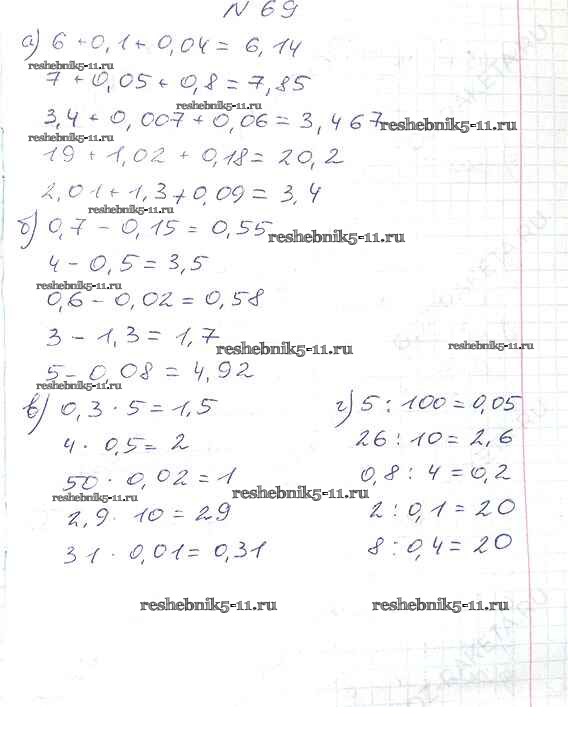 N 69
а) 6 + 0,1 + 0,04 = 6,14
reshebnik5-11.ru
7 + 0,05 + 0,8 = 7,85
reshebnik5-11.ru
3,4 + 0,007 + 0,06 = 3,467
reshebnik5-11.ru
reshebnik5-11.ru
19 + 1,02 + 0,18 = 20,2
2,01 + 1,3 + 0,09 = 3,4
reshebnik5-11.ru
б) 0,7 - 0,15 = 0,55
reshebnik5-11.ru
4 - 0,5 = 3,5
reshebnik5-11.ru
0,6 - 0,02 = 0,58
3 - 1,3 = 1,7
reshebnik5-11.ru
reshebnik5-11.ru
5 - 0,08 = 4,92
reshebnik5-11.ru
в) 0,3 · 5 = 1,5
4 · 0,5 = 2
50 · 0,02 = 1
reshebnik5-11.ru
reshebnik5-11.ru
2,9 · 10 = 29
31 · 0,01 = 0,31
г) 5 : 100 = 0,05
26 : 10 = 2,6
0,8 : 4 = 0,2
2 : 0,1 = 20
8 : 0,4 = 20
reshebnik5-11.ru
reshebnik5-11.ru